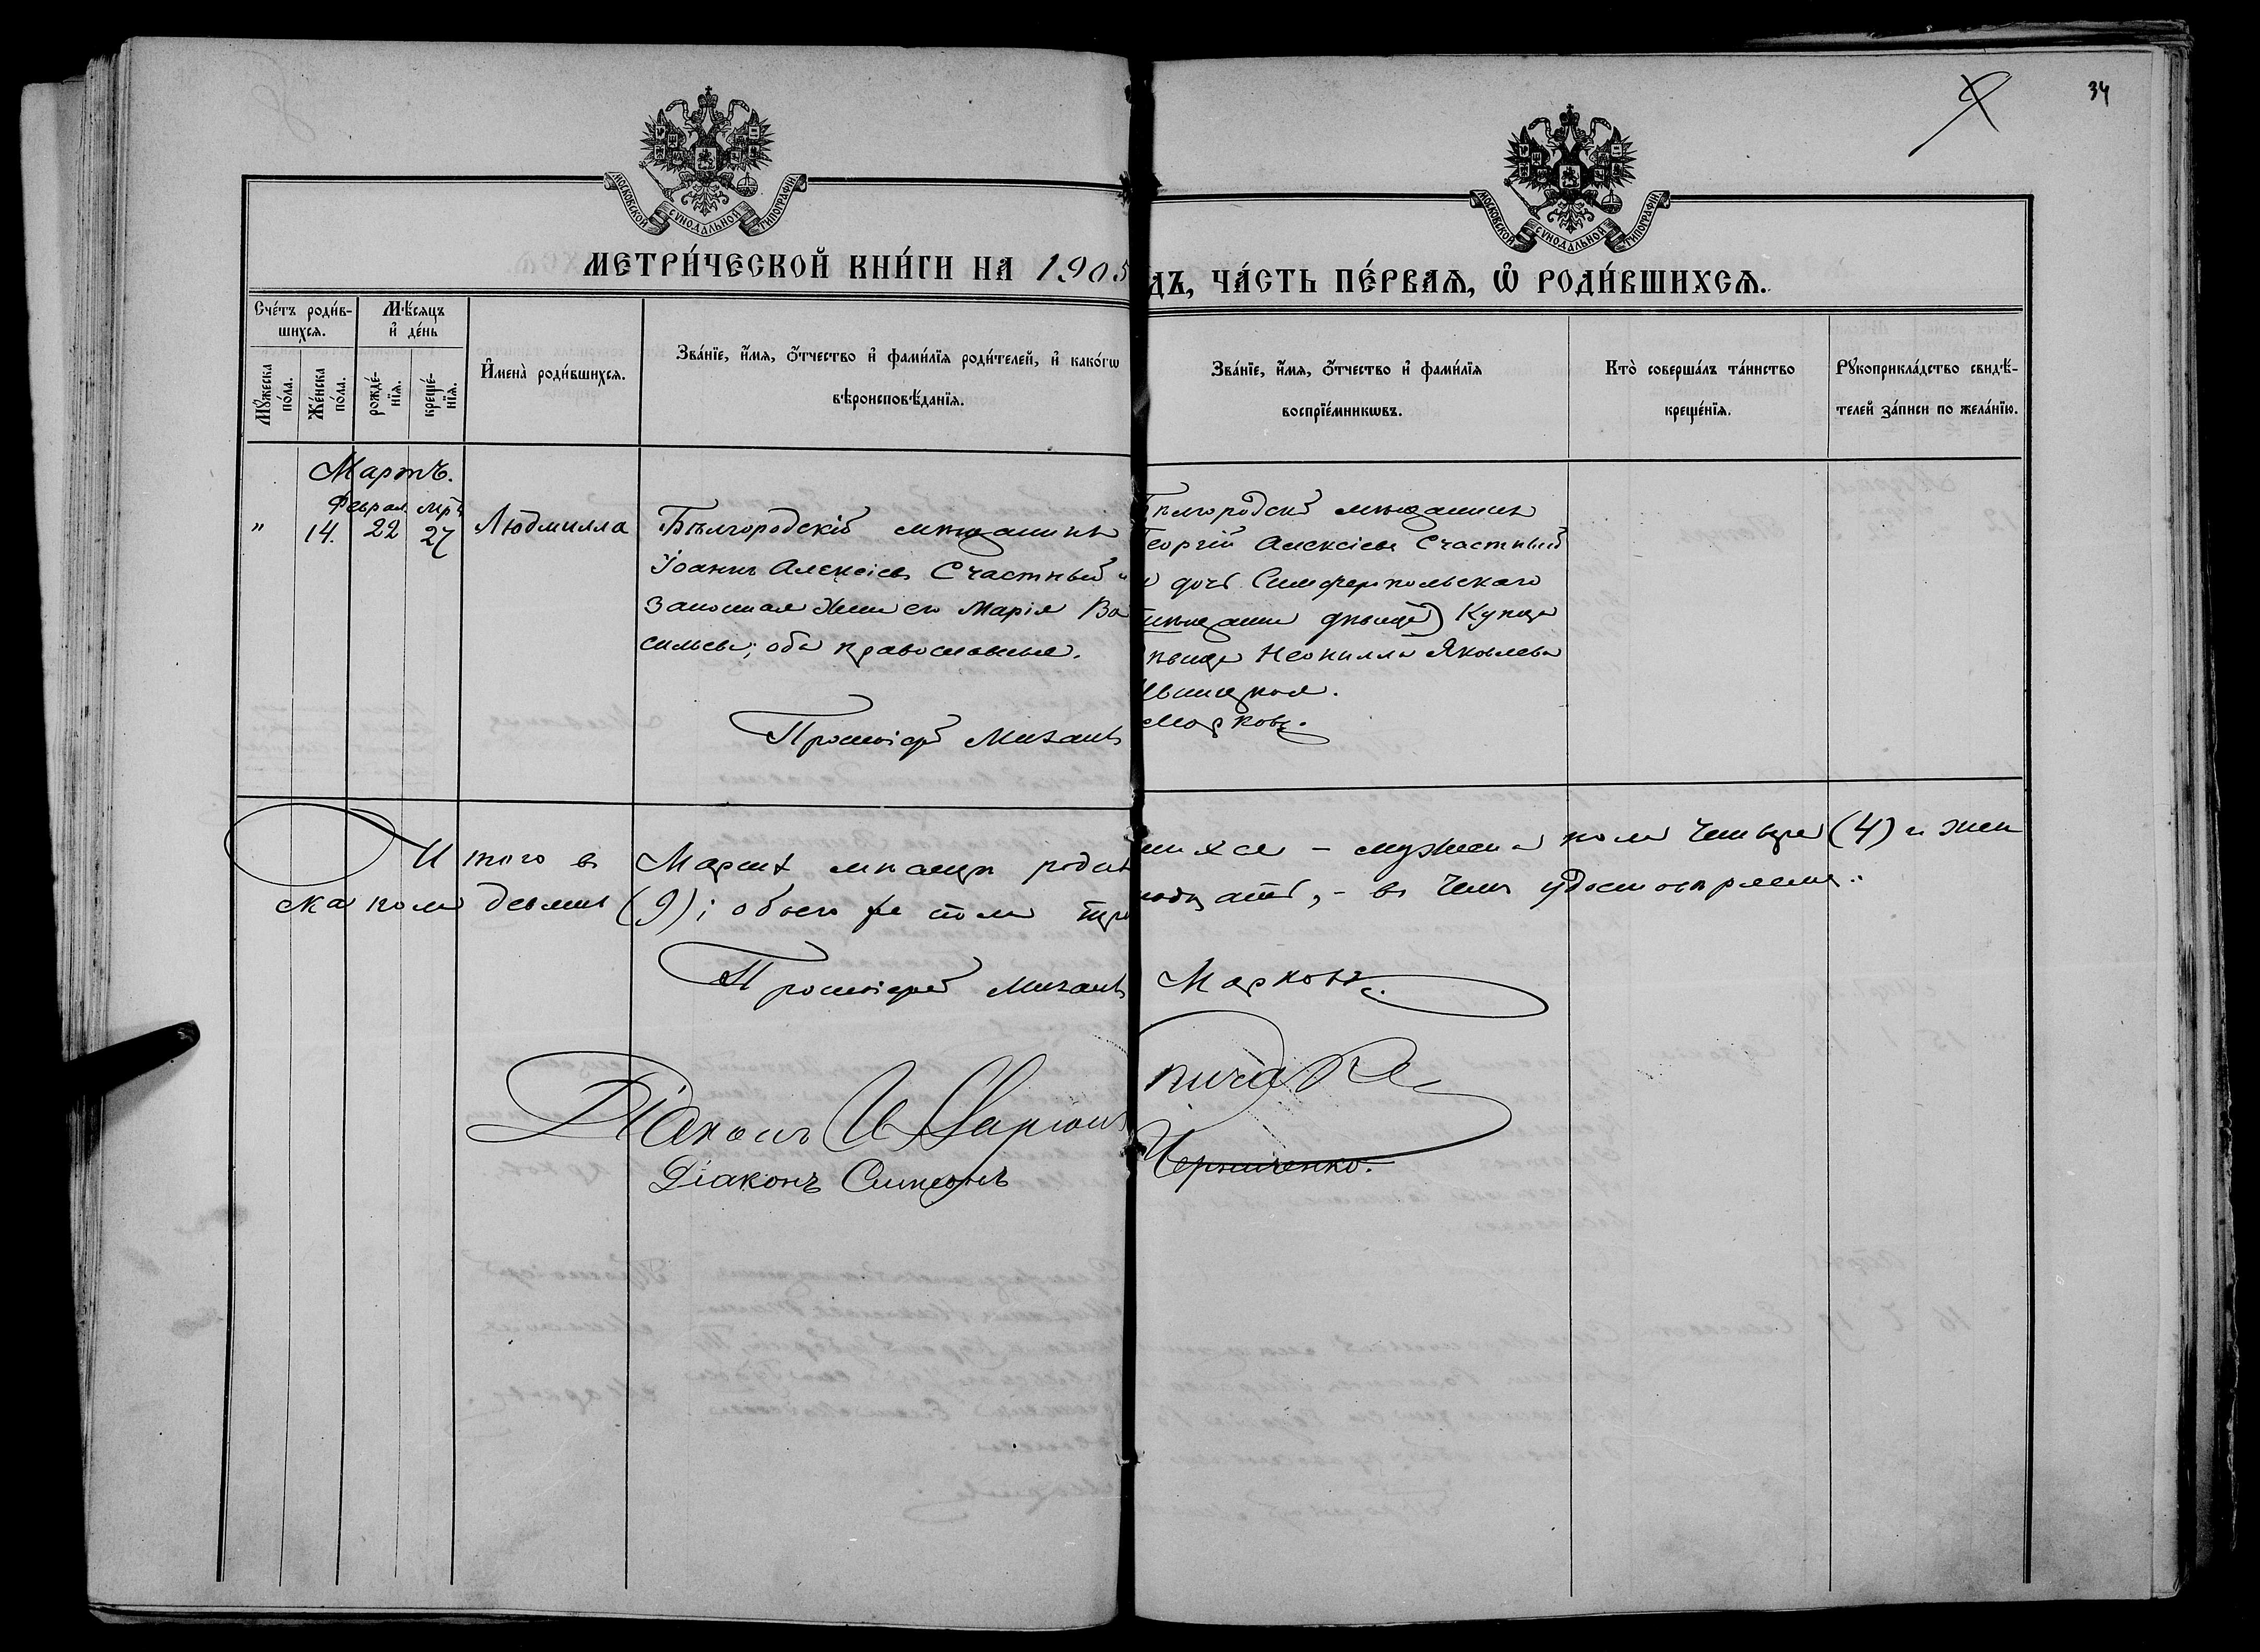 34
МОСКОВСКОЙ СУНОДАЛЬНОЙ ТИПОГРАФІИ
МОСКОВСКОЙ СУНОДАЛЬНОЙ ТИПОГРАФІИ
МЕТРИ́ЧЕСКОЙ КНИ́ГИ НА 1905
ДЪ, ЧА́СТЬ ПЕ́РВАѦ, Ѡ҆ РОДИ́ВШИХСѦ.
Сче́тъ роди́в-
шихсѧ.
Мꙋ́жеска по́ла.
Же́нска по́ла.
Мѣ́сѧцъ
и҆ де́нь
рожде́-
нїѧ.
креще́-
нїѧ.
И҆мена̀ роди́вшихсѧ.
Зва́нїе, и҆́мѧ, ѻ҆́тчество и҆ фами́лїѧ роди́телей, и҆ како́гѡ
вѣроисповѣ́данїѧ.
Зва́нїе, и҆́мѧ, ѻ҆́тчество и҆ фами́лїѧ
воспрїе́мникѡвъ.
Кто̀ соверша́лъ та́инство
креще́нїѧ.
Рꙋкоприкла́дство свидѣ́-
телей за́писи по жела́нїю.
Мартъ.
Феврал. Мрт.
" 14. 22 27 Людмилла
Бѣлгородскій мѣщанинъ
Іоаннъ Алексіевъ Счастный и
законная жена его Марія Ва
сильева; оба православные.
Протоіерей Михаилъ
Бѣлгородскій мѣщанинъ
Георгій Алексіевъ Счастный
и дочь Симферопольскаго
дѣвица) Купца
дѣвица Неонилла Яковлева
Марковъ.
Итого въ Мартѣ мѣсяцѣ родив
шихся – мужска пола четыре (4) и жен
ска пола девять (9); обоего же пола три
надцать, – въ чемъ удостовѣряемъ:
Протоіерей Михаилъ Марковъ.
Діаконъ
Діаконъ Симеонъ Черниченко.